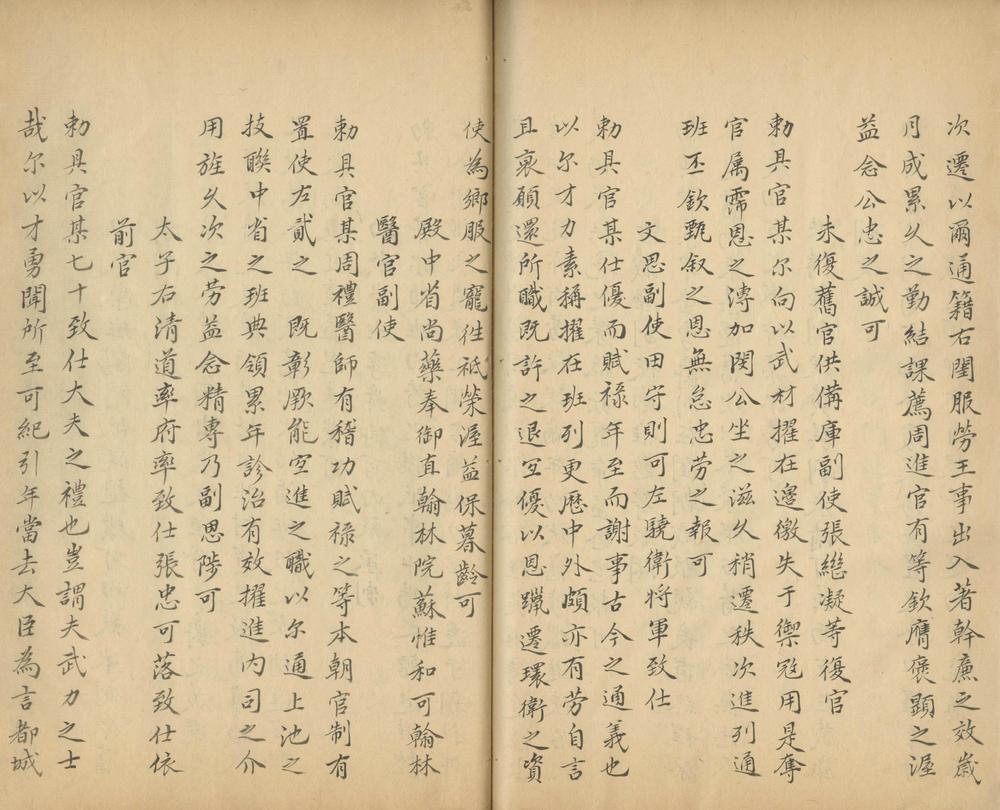 次遷以爾通籍右閨服勞王事出入著幹廉之效歲
月成累久之勤結課薦周進官有等欽膺褒顯之渥
益念公忠之誠可
未復舊官供備庫副使張繼凝等復官
勅具官某尔向以武材擢在邊徼失于禦寇用是奪
官属霈恩之溥加閔公坐之滋久稍遷秩次進列通
班丕欽甄叙之恩無怠忠劳之報可
文思副使田守則可左驍衛将軍致仕
勅具官某仕優而賦禄年至而謝事古今之通義也
以尔才力素稱擢在班列更歷中外頗亦有劳自言
且衰願還所職既許之退宜優以恩躐遷環衛之資
使為鄉服之寵往祗榮渥益保暮齡可
殿中省尚藥奉御直翰林院蘇惟和可翰林
醫官副使
勅具官某周禮醫師有稽功賦禄之等本朝官制有
置使左貳之 既彰厥能宜進之職以尔通上池之
技聯中省之班典領累年診治有效擢進内司之介
用旌久次之劳益念精專乃副思陟可
太子右清道率府率致仕張忠可落致仕依
前官
勅具官某七十致仕大夫之禮也豈謂夫武力之士
哉尔以才勇聞所至可紀引年當去大臣為言都城